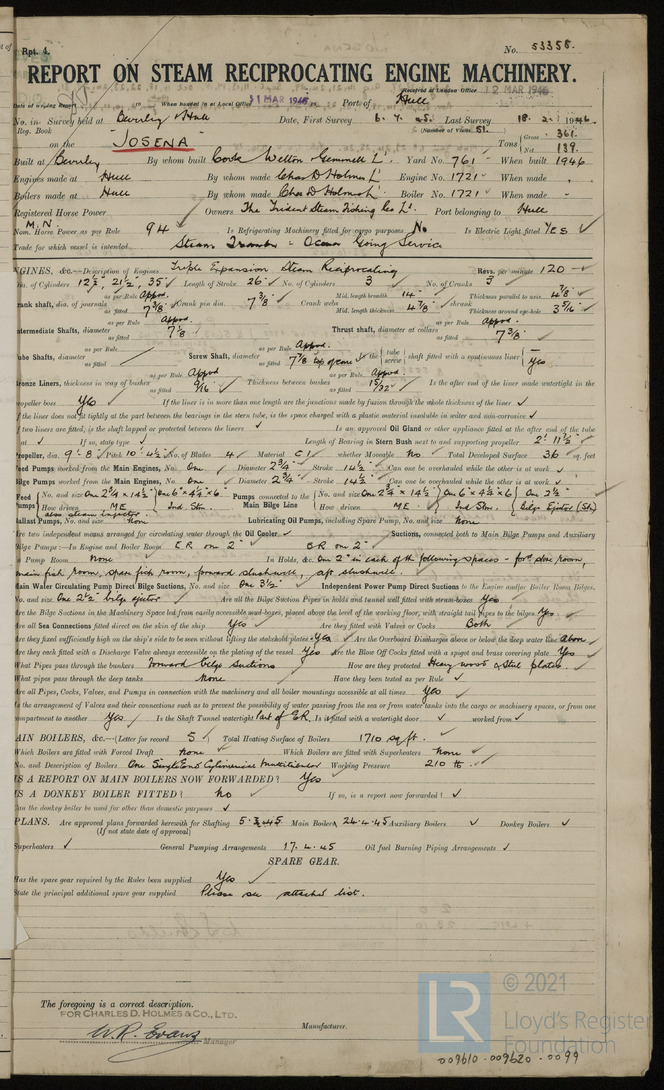 Rpt. 4.
No. 53358.
REPORT ON STEAM RECIPROCATING ENGINE MACHINERY.
Received at London Office 12 MAR 1946
Date of writing Report When handed in at Local Office 11 MAR 1946 Port of Hull
No. in Survey held at Beverley & Hull Date, First Survey 6. 7. 45. Last Survey 18. 2. 1946.
Reg. Book (Number of Visits 51.
on the JOSENA Tons Gross 361. Net 139.
Built at Beverley By whom built Cook Welton Gemmell Ld. Yard No. 761 When built 1946
Engines made at Hull By whom made Chas D Holmes Ld. Engine No. 1721 When made
Boilers made at Hull By whom made Chas D Holmes Ld. Boiler No. 1721 When made
Registered Horse Power Owners The Trident Steam Fishing Co Ld. Port belonging to Hull
M.N.
Nom. Horse Power as per Rule 94 Is Refrigerating Machinery fitted for cargo purposes No Is Electric Light fitted Yes
Trade for which vessel is intended Steam Trawler - Ocean Going Service
ENGINES, &c.—Description of Engines Triple Expansion Steam Reciprocating Revs. per minute 120
Dia. of Cylinders 12½", 21½", 35" Length of Stroke 26" No. of Cylinders 3 No. of Cranks 3
Crank shaft, dia. of journals as per Rule Appd. as fitted 7 3/8" Crank pin dia. 7 3/8" Crank webs Mid. length breadth 14" Mid. length thickness 4 7/8" shrunk Thickness parallel to axis 4 7/8" Thickness around eye-hole 3 5/16"
Intermediate Shafts, diameter as per Rule Appd. as fitted 7 1/8" Thrust shaft, diameter at collars as per Rule Appd. as fitted 7 3/8"
Tube Shafts, diameter as per Rule as fitted Screw Shaft, diameter as per Rule Appd. as fitted 7 7/8" Is the tube screw shaft fitted with a continuous liner Yes
Bronze Liners, thickness in way of bushes as per Rule Appd as fitted 9/16" Thickness between bushes as per Rule Appd. as fitted 15/32" Is the after end of the liner made watertight in the
propeller boss Yes If the liner is in more than one length are the junctions made by fusion through the whole thickness of the liner
If the liner does not fit tightly at the part between the bearings in the stern tube, is the space charged with a plastic material insoluble in water and non-corrosive
If two liners are fitted, is the shaft lapped or protected between the liners Is an approved Oil Gland or other appliance fitted at the after end of the tube
shaft If so, state type Length of Bearing in Stern Bush next to and supporting propeller 2' 11½"
Propeller, dia. 9'-8" Pitch 10'-4½" No. of Blades 4 Material C I whether Moveable No Total Developed Surface 36 sq. feet
Feed Pumps worked from the Main Engines, No. One Diameter 2¾" Stroke 14½" Can one be overhauled while the other is at work
Bilge Pumps worked from the Main Engines, No. One Diameter 2¾" Stroke 14½" Can one be overhauled while the other is at work
Feed Pumps No. and size One 2¾" x 14½" One 6" x 4½" x 6 Pumps connected to the Main Bilge Line No. and size One 2¾" x 14½" One 6" x 4½" x 6 One 2½"
How driven ME Ind. Stm. How driven ME. Ind. Stm. Bilge Ejector (Stm)
also steam injector.
Ballast Pumps, No. and size None Lubricating Oil Pumps, including Spare Pump, No. and size None
Are two independent means arranged for circulating water through the Oil Cooler Suctions, connected both to Main Bilge Pumps and Auxiliary
Bilge Pumps:—In Engine and Boiler Room E R one 2" B R one 2"
In Pump Room None In Holds, &c. One 2" in each of the following spaces - ford. store room,
main fish room, spare fish room, forward slushwell, aft slushwell.
Main Water Circulating Pump Direct Bilge Suctions, No. and size One 3½" Independent Power Pump Direct Suctions to the Engine and/or Boiler Room Bilges,
No. and size One 2½" bilge ejector Are all the Bilge Suction Pipes in holds and tunnel well fitted with strum-boxes Yes
Are the Bilge Suctions in the Machinery Space led from easily accessible mud-boxes, placed above the level of the working floor, with straight tail pipes to the bilges Yes
Are all Sea Connections fitted direct on the skin of the ship Yes Are they fitted with Valves or Cocks Both
Are they fixed sufficiently high on the ship's side to be seen without lifting the stokehold plates Yes Are the Overboard Discharges above or below the deep water line above
Are they each fitted with a Discharge Valve always accessible on the plating of the vessel Yes Are the Blow Off Cocks fitted with a spigot and brass covering plate Yes
What Pipes pass through the bunkers Forward bilge suctions How are they protected Heavy wood & steel plates
What pipes pass through the deep tanks None Have they been tested as per Rule
Are all Pipes, Cocks, Valves, and Pumps in connection with the machinery and all boiler mountings accessible at all times Yes
Is the arrangement of Valves and their connections such as to prevent the possibility of water passing from the sea or from water tanks into the cargo or machinery spaces, or from one
compartment to another Yes Is the Shaft Tunnel watertight Is it fitted with a watertight door worked from
MAIN BOILERS, &c.—(Letter for record S Total Heating Surface of Boilers 1710 sq ft.
Which Boilers are fitted with Forced Draft None Which Boilers are fitted with Superheaters None
No. and Description of Boilers One Single End Cylindrical Multitubular Working Pressure 210 lb.
IS A REPORT ON MAIN BOILERS NOW FORWARDED? Yes
IS A DONKEY BOILER FITTED? No If so, is a report now forwarded?
Can the donkey boiler be used for other than domestic purposes
PLANS. Are approved plans forwarded herewith for Shafting 5.3.45 Main Boilers 24.4.45 Auxiliary Boilers Donkey Boilers
(If not state date of approval)
Superheaters General Pumping Arrangements 17.4.45 Oil fuel Burning Piping Arrangements
SPARE GEAR.
Has the spare gear required by the Rules been supplied Yes
State the principal additional spare gear supplied Please see attached list.
The foregoing is a correct description.
FOR CHARLES D. HOLMES & CO., LTD.
W.R. Evans Manager Manufacturer.
© 2021
LR Lloyd's Register
Foundation
009610-009620-0099